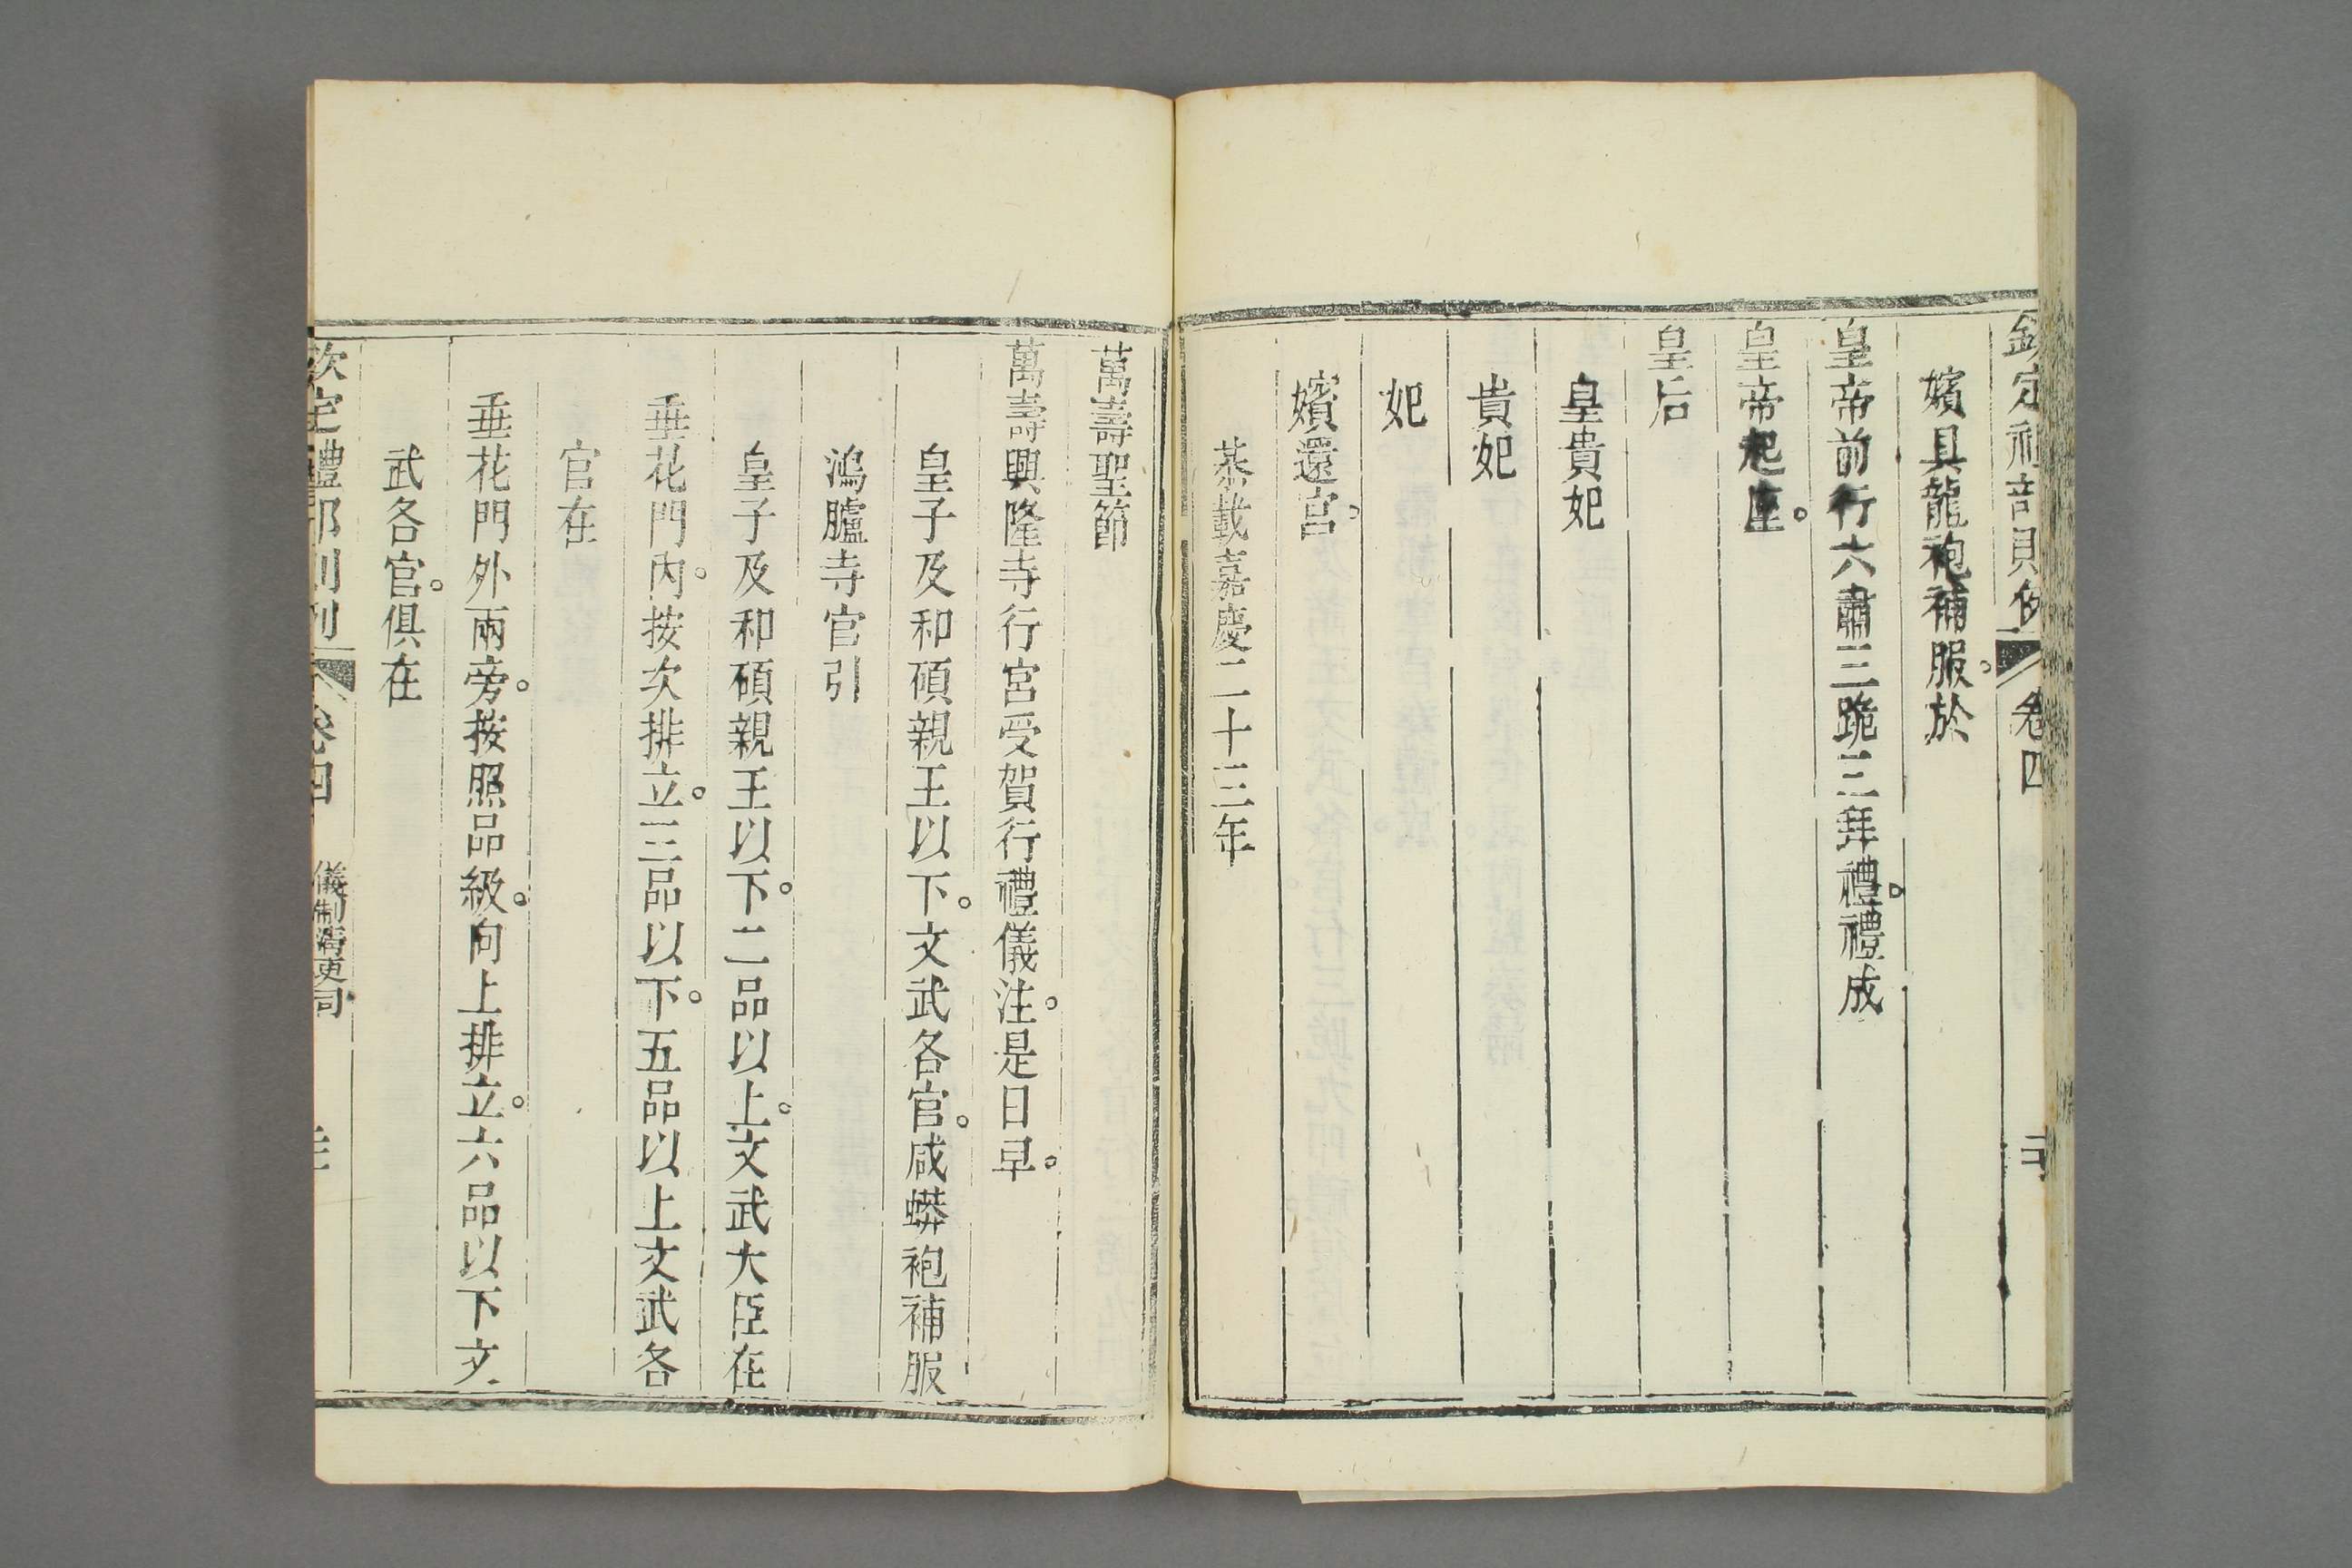 欽定禮部則例 卷四
嬪具龍袍補服。於
皇帝前行六肅三跪三拜禮。禮成
皇帝起座。
皇后
皇貴妃
貴妃
妃
嬪還宮。
恭載嘉慶二十三年
萬壽聖節
萬壽興隆寺行宮受賀行禮儀注。是日早。
皇子及和碩親王以下。文武各官。咸蟒袍補服
鴻臚寺官引
皇子及和碩親王以下。二品以上。文武大臣在
垂花門內。按次排立。三品以下。五品以上文武各
官在
垂花門外兩旁。按照品級。向上排立。六品以下文
武各官。俱在
欽定禮部則例 卷四 儀制清吏司